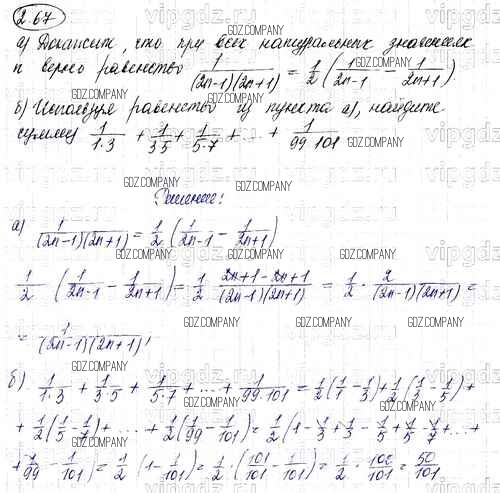 2.67
а) Докажите, что при всех натуральных значениях
n верно равенство 1/((2n-1)(2n+1)) = 1/2 (1/(2n-1) - 1/(2n+1)).
б) Используя равенство из пункта а), найдите
сумму 1/(1·3) + 1/(3·5) + 1/(5·7) + ... + 1/(99·101).
Решение:
а) 1/((2n-1)(2n+1)) = 1/2 (1/(2n-1) - 1/(2n+1))
1/2 (1/(2n-1) - 1/(2n+1)) = 1/2 · (2n+1-2n+1)/((2n-1)(2n+1)) = 1/2 · 2/((2n-1)(2n+1)) =
= 1/((2n-1)(2n+1));
б) 1/(1·3) + 1/(3·5) + 1/(5·7) + ... + 1/(99·101) = 1/2(1/1 - 1/3) + 1/2(1/3 - 1/5) +
+ 1/2(1/5 - 1/7) + ... + 1/2(1/99 - 1/101) = 1/2(1 - 1/3 + 1/3 - 1/5 + 1/5 - 1/7 + ... +
+ 1/99 - 1/101) = 1/2 (1 - 1/101) = 1/2 · (101/101 - 1/101) = 1/2 · 100/101 = 50/101
GDZ.COMPANY
vipgdz.ru